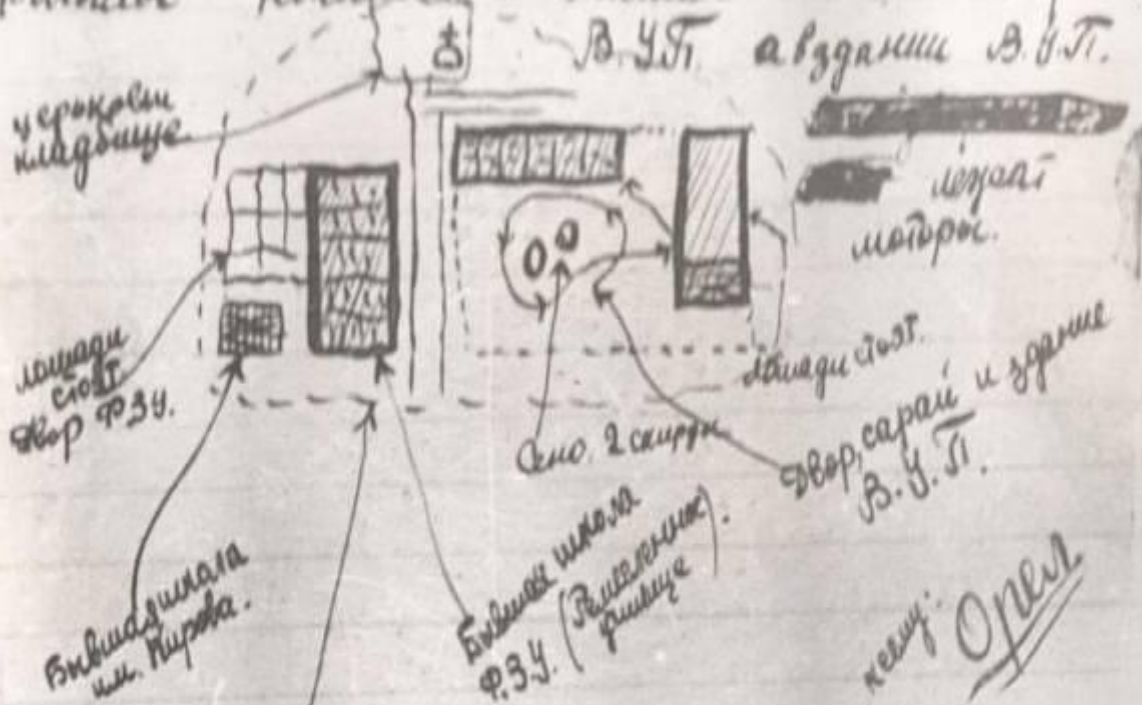 В.У.П. а в здании В.У.П.
лежат
моторы.
церковь и
кладбище
лошади
стоят
Двор ФЗУ.
лошади стоят.
Сено. 2 скирды
двор, сарай и здание
В.У.П.
Бывшая школа
им. Кирова.
Бывшая школа
Ф.ЗУ. (Ремесленник
училище).
к сему: Орел